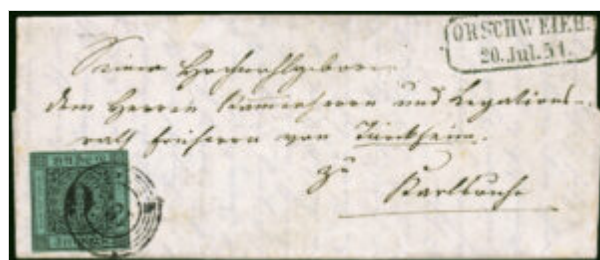 ORSCHWEIER.
20. Jul. 51.
Seiner Hochwohlgeboren
dem Herrn Kammerherrn und Legations-
rath Freiherrn von Türckheim.
zu Karlsruhe